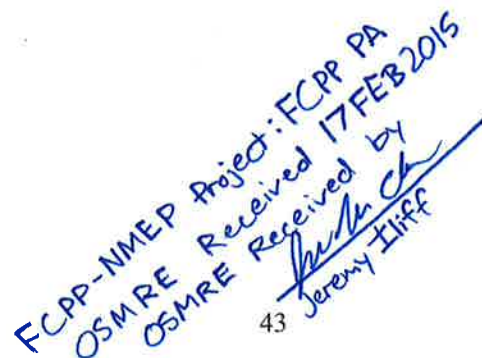 FCPP-NMEP Project: FCPP PA
OSMRE Received 17FEB2015
OSMRE Received by
Jeremy Iliff
43